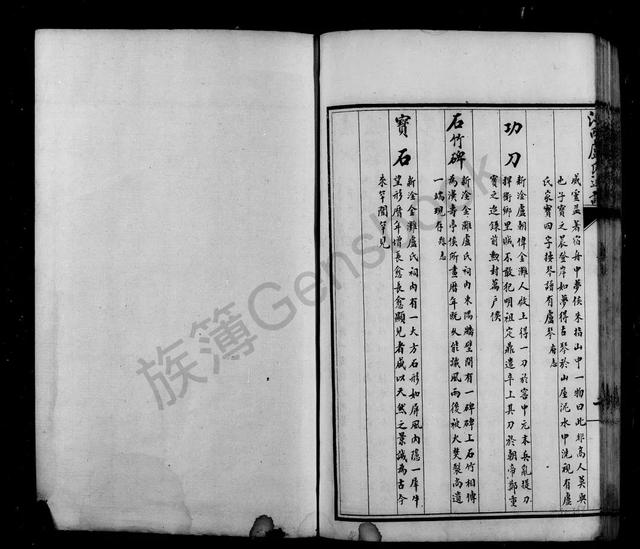 威靈益著宿舟中夢侯朱指山中一物曰此郡高人莫與
也子寶之晨登岸如夢得古琴於山崖泥水中洗視有盧
氏家寶四字接琴譜有盧琴 府志
功刀
新淦盧朝偉金灘人啟土得一刀於窖中元末兵亂提刀
捍衛鄉里賊不敢犯明祖定鼎遣卒上其刀於朝帝鄭重
寶之追錄前勲封萬户侯
石竹碑
新淦金灘盧氏祠內東隅牆壁間有一碑碑上石竹相傳
為漢壽亭侯所畫曆年既久能識風雨後被火焚製尚遺
一端現存 縣志
寶石
新淦金灘盧氏祠內有一大方石形如屏風內隱一犀牛
望形曆年增長愈長愈顯見者咸以天然之景誠為古今
來罕聞罕見
族簿Genshock